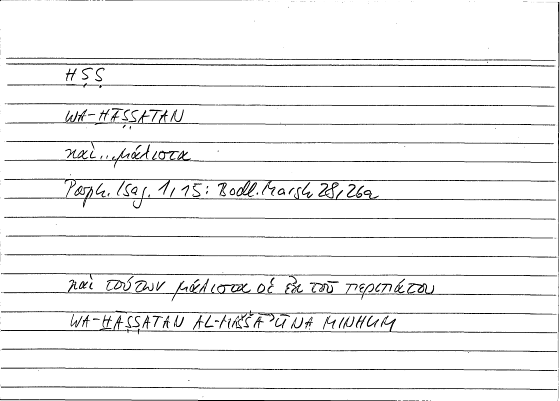 H̱ṢṢ
WA-H̱ĀṢṢATAN
καὶ...μάλιστα
Porph. Isag. 1,15: Bodl. Marsh 28, 26a
καὶ τούτων μάλιστα οἱ ἐκ τοῦ περιπάτου
WA-H̱ĀṢṢATAN AL-MAŠŠĀʾŪNA MINHUM